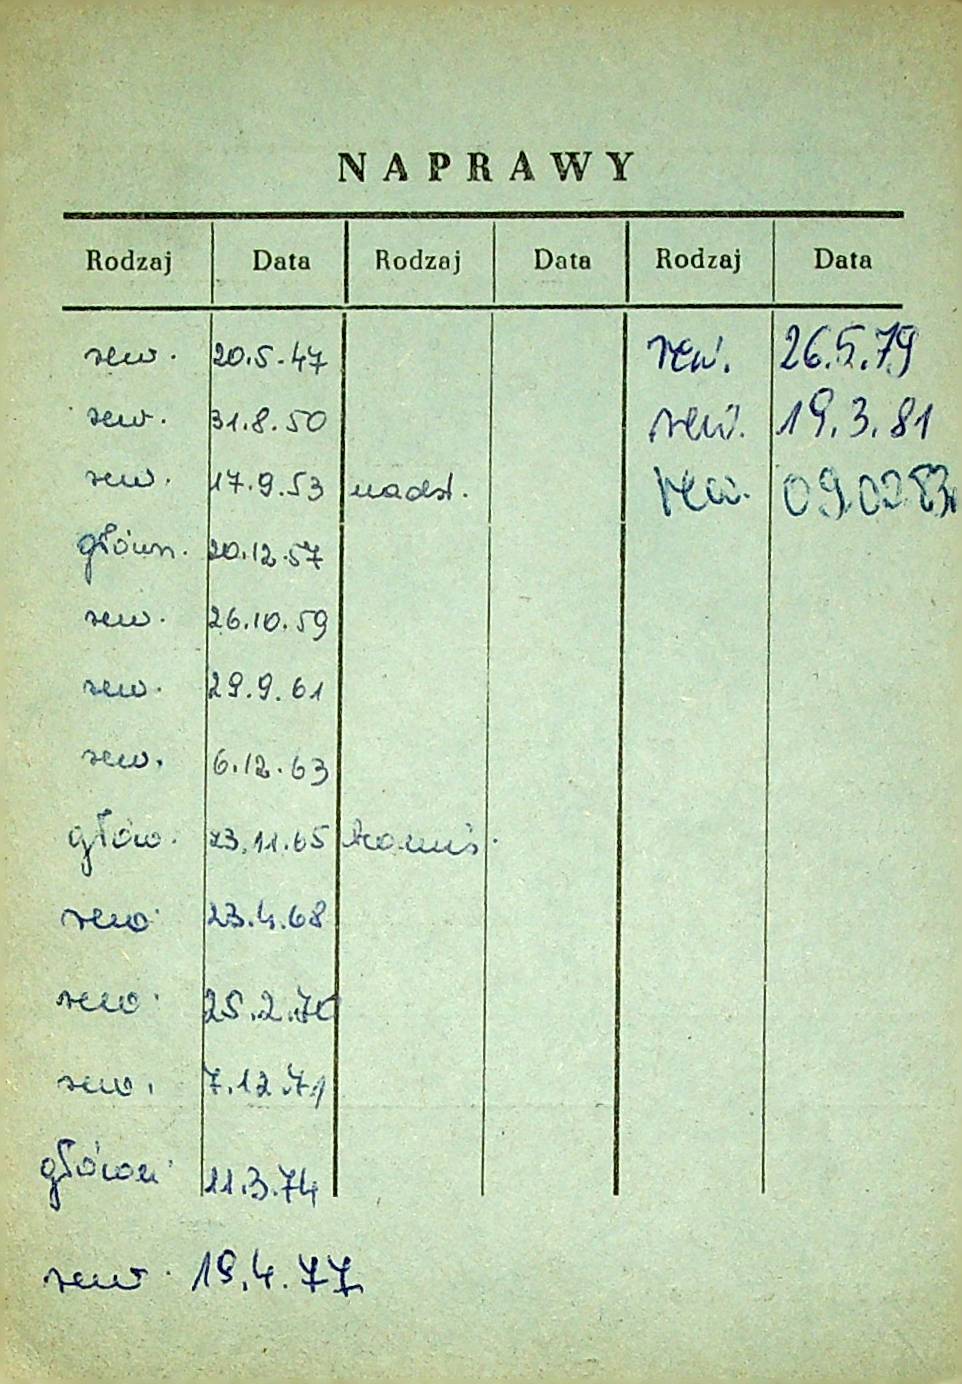 NAPRAWY
Rodzaj Data Rodzaj Data Rodzaj Data
rew. 20.5.47 rew. 26.5.79
rew. 31.8.50 rew. 19.3.81
rew. 17.9.53 nadst. rew. 09.02.83
główn. 20.12.57
rew. 26.10.59
rew. 29.9.61
rew. 6.12.63
głów. 23.11.65
rew. 23.4.68
rew. 25.2.70
rew. 7.12.71
główn. 11.3.74
rew. 19.4.77